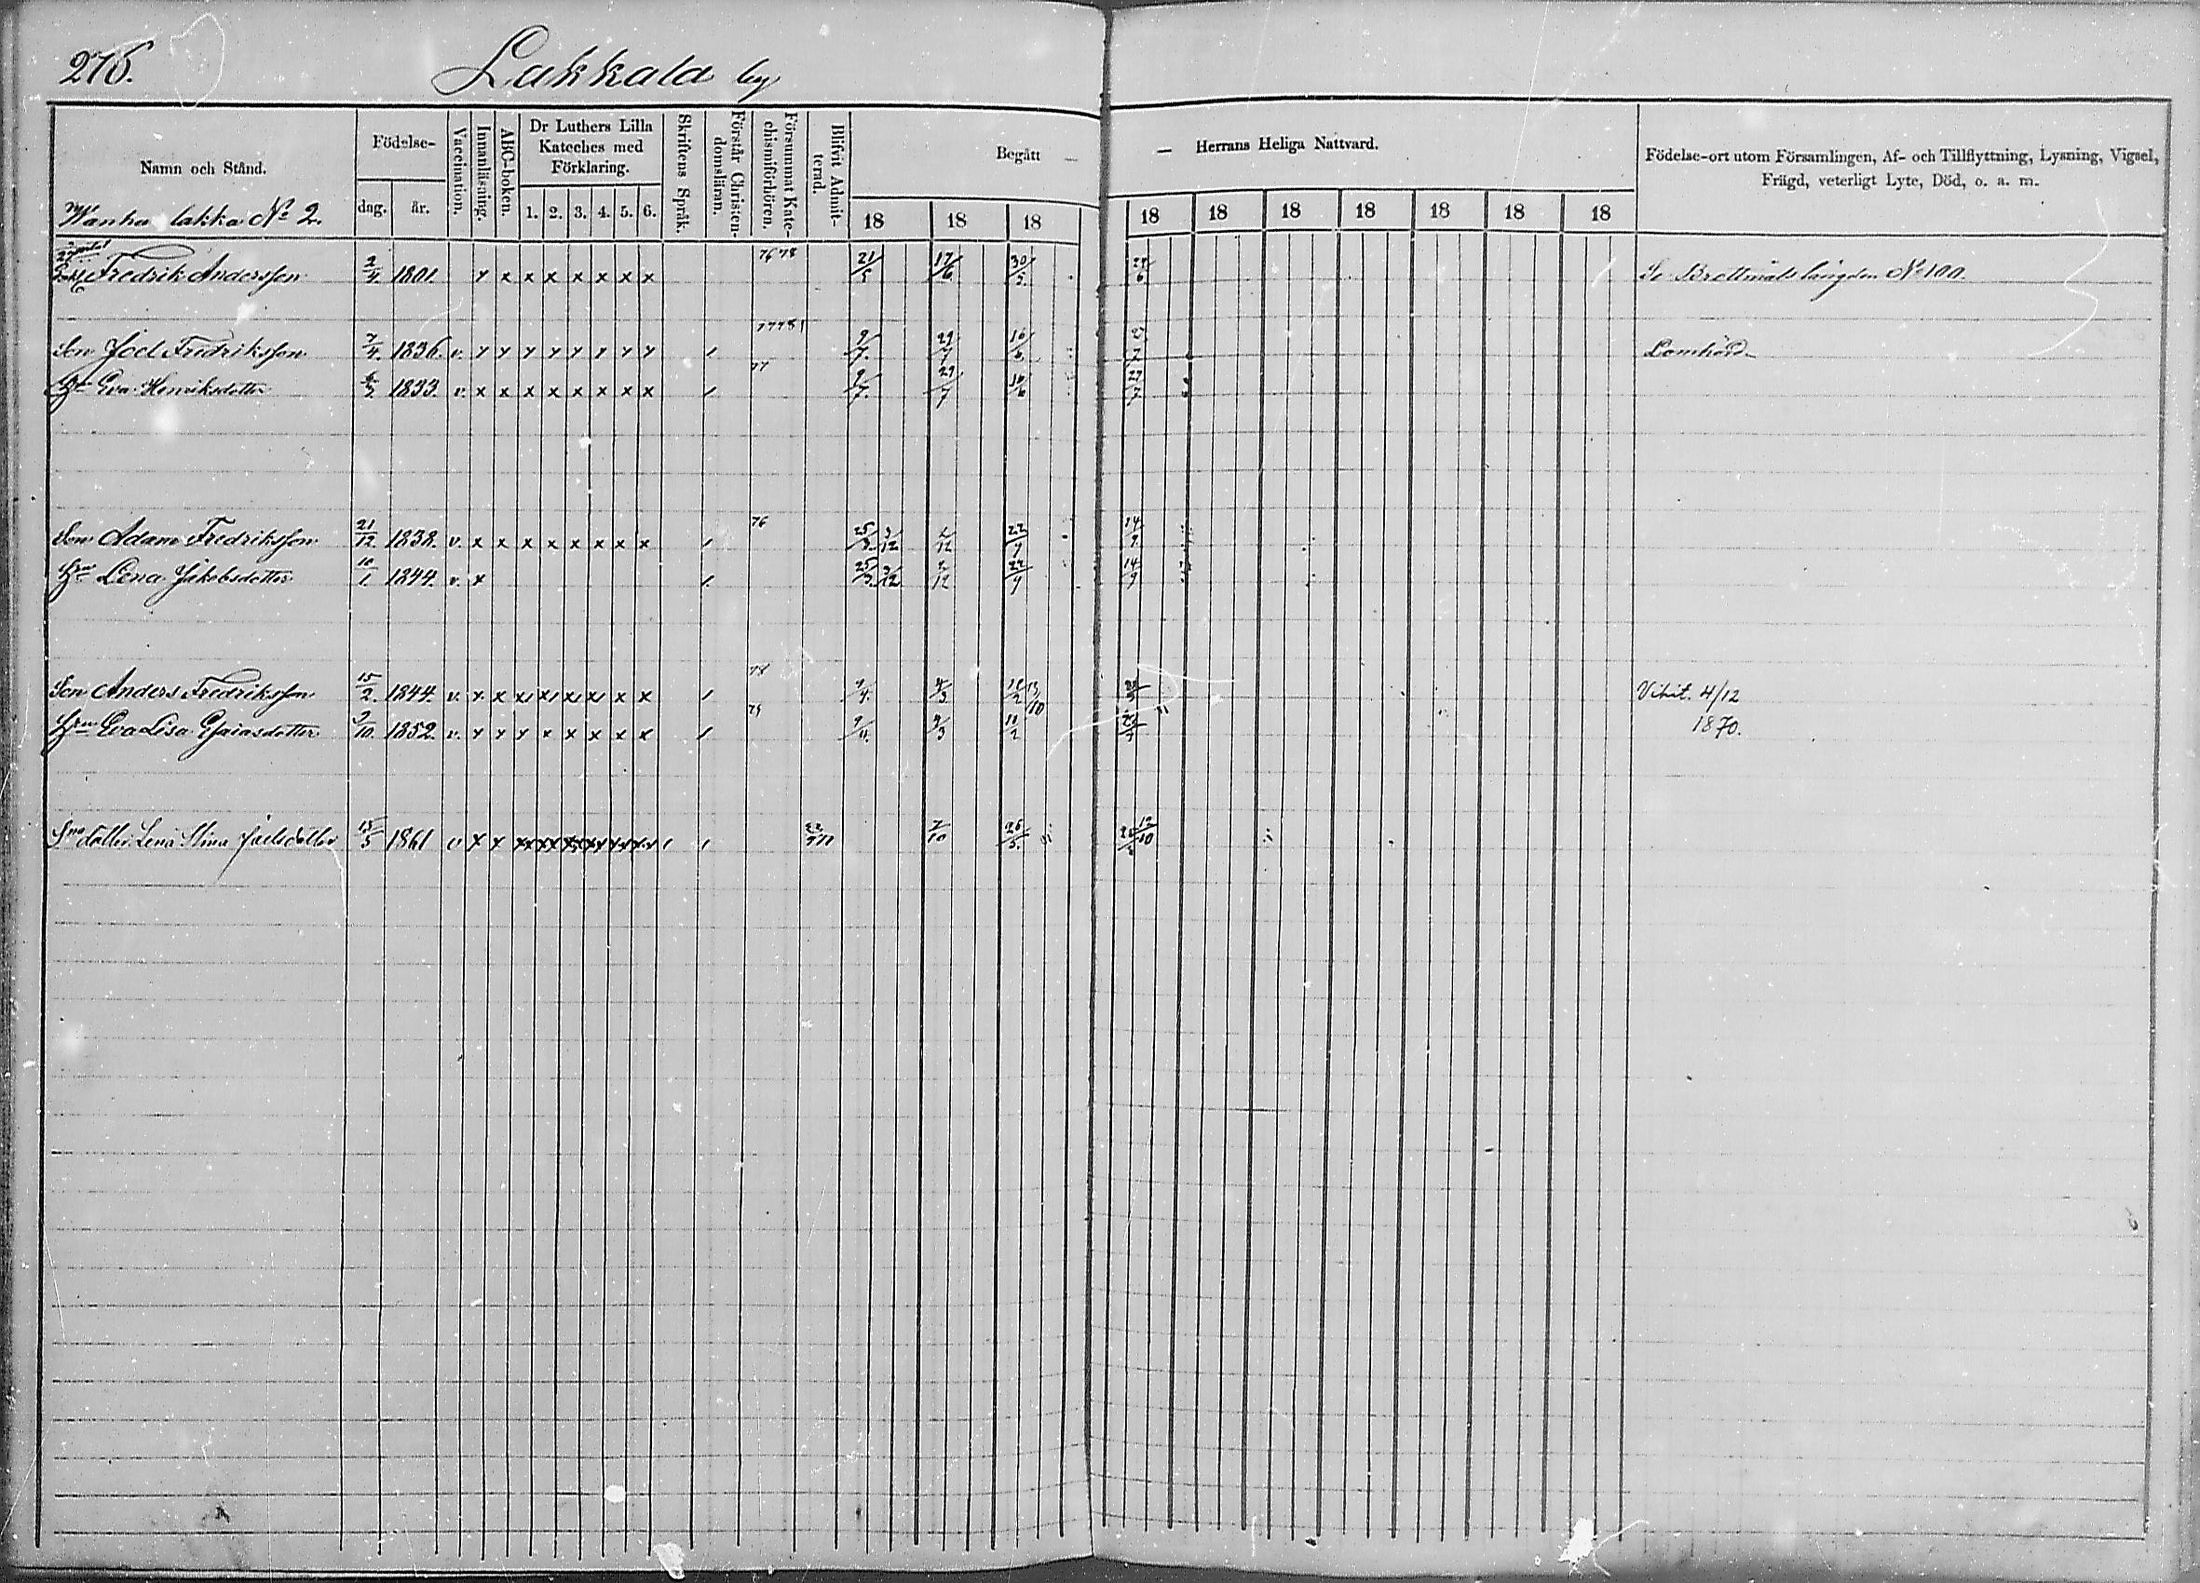 276.
Lakkala by
Namn och Stånd.
Födelse-
dag.
år.
Vaccination.
Innanläsning.
ABC-boken.
Dr Luthers Lilla Kateches med Förklaring.
1. 2. 3. 4. 5. 6.
Skriftens Språk.
Förstår Christendomsläran.
Försummat Katechismiförhören.
Blifvit Admitterad.
Begått —
— Herrans Heliga Nattvard.
Födelse-ort utom Församlingen, Af- och Tillflyttning, Lysning, Vigsel,
Frägd, veterligt Lyte, Död, o. a. m.
18 18 18 18 18 18 18 18 18 18
Wanha lakka No 2.
Fredrik Andersson 2/4 1801. x x x x x x x x 76 78 21/5 17/6 30/5 Se Brottmåls längden No 100.
Son Joel Fredriksson 7/4. 1836. v. x x x x x x x x 9/7. 29/7 10/6 Lomhörd
H:u Eva Henriksdotter 1833. v. x x x x x x x x 77 9/7. 29/7 10/6
Son Adam Fredriksson 21/12 1838. v. x x x x x x x x 76 3/12 2/12 22/9 14/9
H:u Lena Jakobsdotter 10/1 1844. v. x 3/12 2/12 22/9 14/9
Son Anders Fredriksson 15/2. 1844. v. x x x x x x x x 78 13/10 Vihit. 4/12
H:u Eva Lisa Esaiasdotter 9/10. 1852. v. x x x x x x x x 1870.
S:ns dotter Lena Stina Joelsdotter 15/5 1861 v x x xx xx xx xx xx xx 7/10 26/5. 12/10